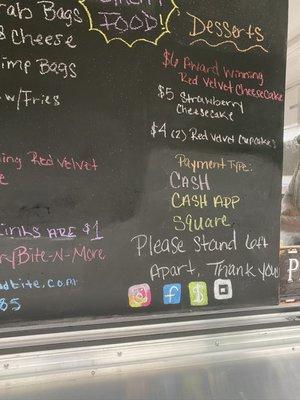 rab Bags
& Cheese
imp Bags
w/Fries
FOOD!
Desserts
$6 Award Winning
Red Velvet Cheesecake
$5 Strawberry
Cheesecake
$4 (2) Red Velvet Cupcakes
ing Red Velvet
Payment Type:
CASH
CASH APP
Square
inks are $1
Bite-N-More
Please Stand 6ft
Apart, Thank you!
dbite.com
85
f
$
P